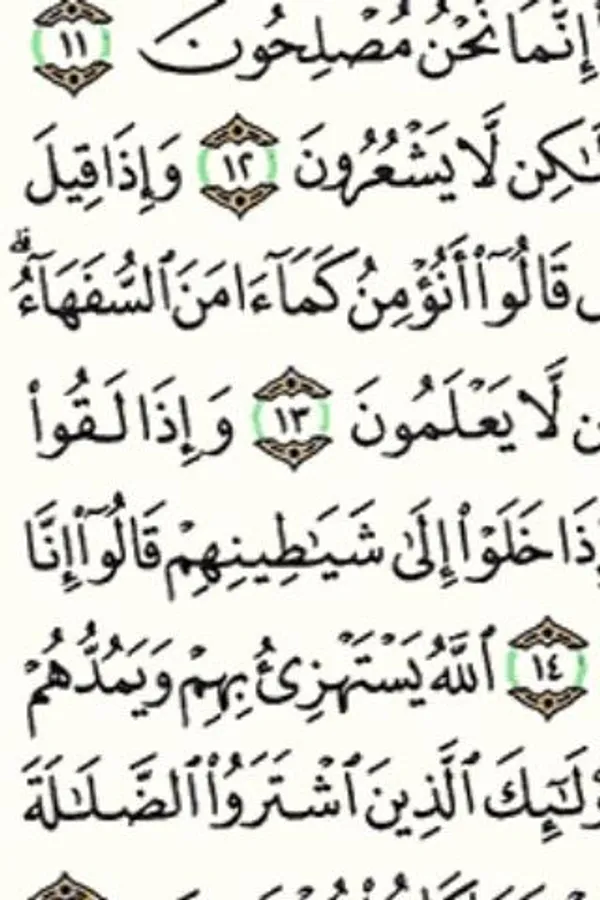 إِنَّمَا نَحْنُ مُصْلِحُونَ ١١
لَٰكِن لَّا يَشْعُرُونَ ١٢ وَإِذَا قِيلَ
قَالُوٓا۟ أَنُؤْمِنُ كَمَآ ءَامَنَ ٱلسُّفَهَآءُ ۗ
لَّا يَعْلَمُونَ ١٣ وَإِذَا لَقُوا۟
إِذَا خَلَوْا۟ إِلَىٰ شَيَٰطِينِهِمْ قَالُوٓا۟ إِنَّا
١٤ ٱللَّهُ يَسْتَهْزِئُ بِهِمْ وَيَمُدُّهُمْ
أُو۟لَٰٓئِكَ ٱلَّذِينَ ٱشْتَرَوُا۟ ٱلضَّلَٰلَةَ